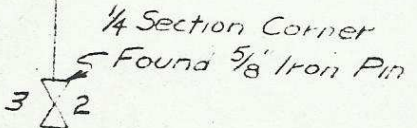 1/4 Section Corner
Found 5/8" Iron Pin
3 2